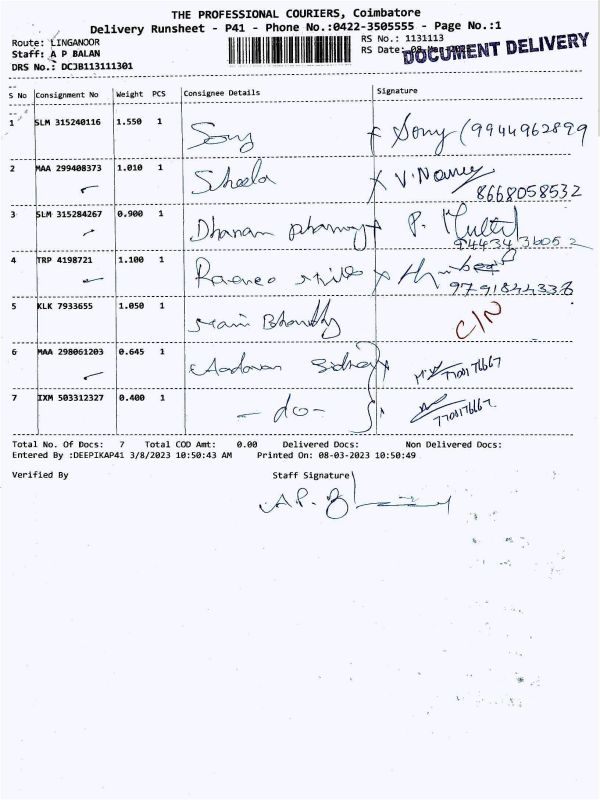 THE PROFESSIONAL COURIERS, Coimbatore
Delivery Runsheet - P41 - Phone No.:0422-3505555 - Page No.:1
Route: LINGANOOR RS No.: 1131113
Staff: A P BALAN RS Date: 08-Mar-2023
DOCUMENT DELIVERY
DRS No.: DCJB113111301
S No Consignment No Weight PCS Consignee Details Signature
1 SLM 315240116 1.550 1 Sony Sony (9944962899
2 MAA 299408373 1.010 1 Sheela V. Nancy
8668058532
3 SLM 315284267 0.900 1 Dhanam P.
4 TRP 4198721 1.100 1
5 KLK 7933655 1.050 1 Mani C/N
6 MAA 298061203 0.645 1 Aadavan
7 IXM 503312327 0.400 1 - do -
Total No. Of Docs: 7 Total COD Amt: 0.00 Delivered Docs: Non Delivered Docs:
Entered By :DEEPIKAP41 3/8/2023 10:50:43 AM Printed On: 08-03-2023 10:50:49
Verified By Staff Signature
A.P.